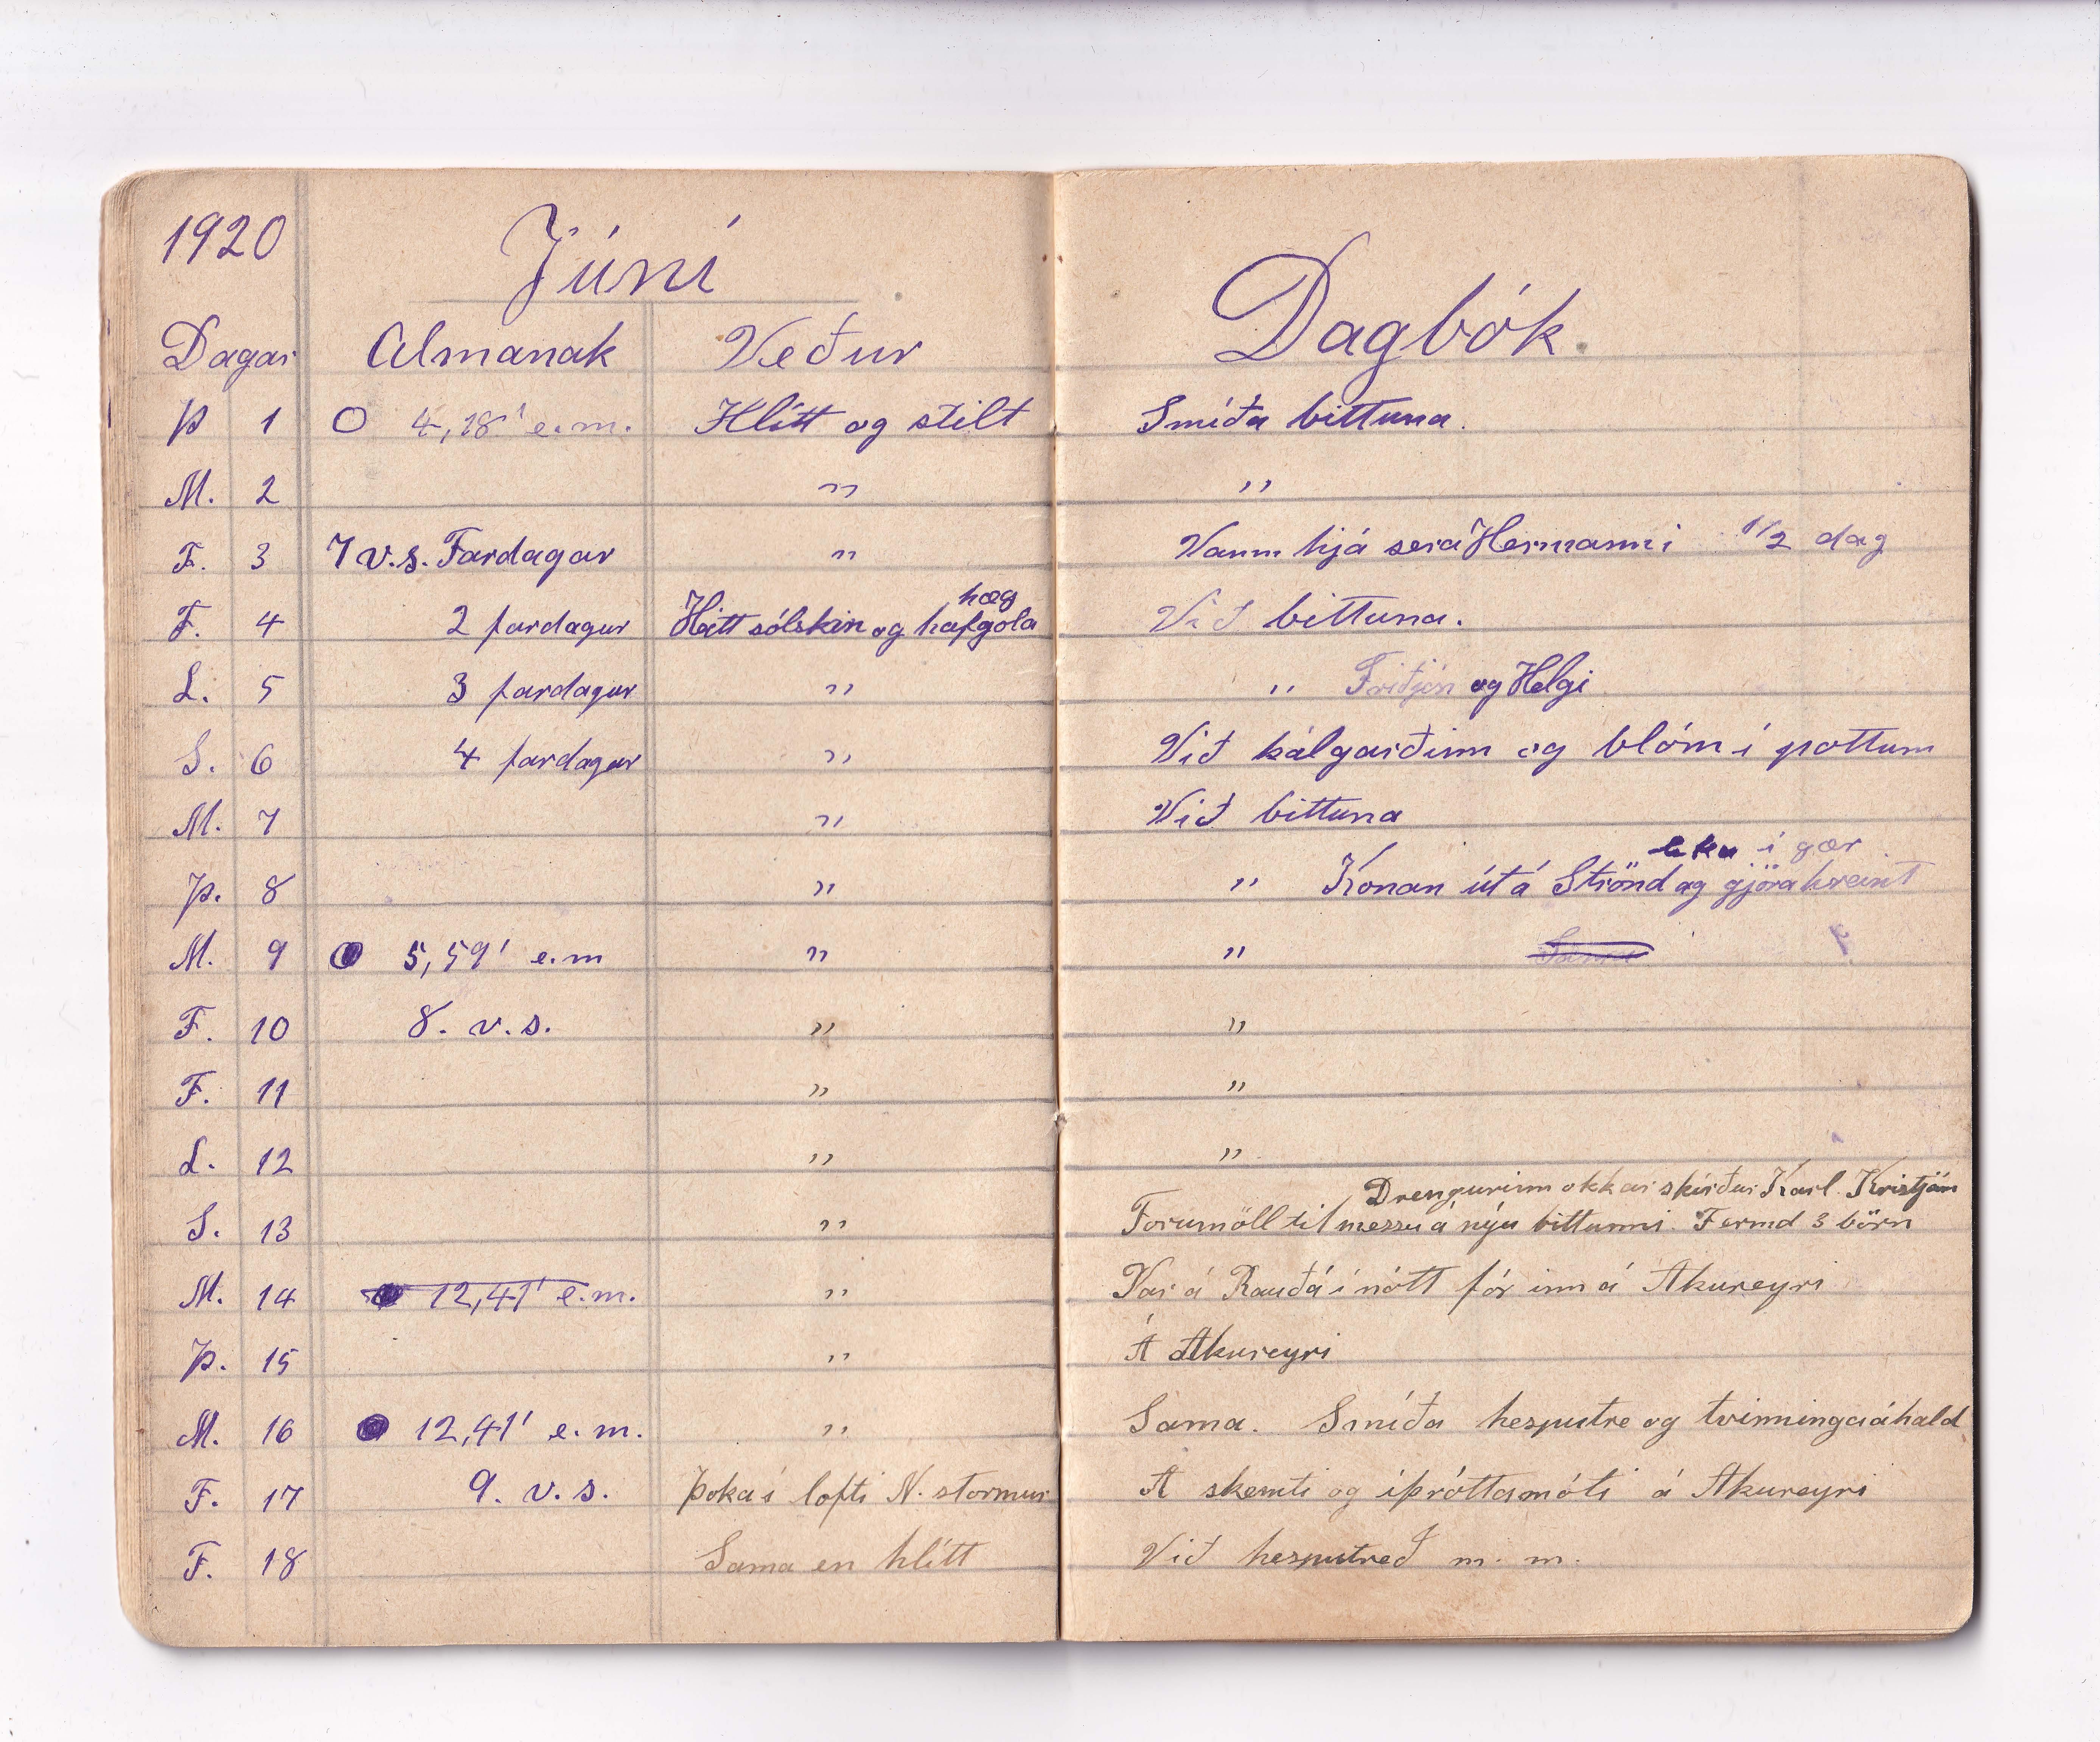 1920 Júní
Dagar Almanak Veður
Þ 1 O 4,18' e.m. Hlítt og stilt
M. 2 ״
F. 3 7 v.s. Fardagar ״
hæg
F. 4 2 fardagur Heitt sólskin og hafgola
L. 5 3 fardagur ״
S. 6 4 fardagur ״
M. 7 ״
Þ. 8 ״
M. 9 5,59' e.m ״
F. 10 8. v.s. ״
F. 11 ״
L. 12 ״
S. 13 ״
M. 14 12,41' e.m. ״
Þ. 15 ״
M. 16 12,41' e.m. ״
F. 17 9. v.s. Þoka í lofti N. stormur
F. 18 Sama en hlítt
Dagbók.
Smíða bittuna.
״
Vann hjá sera Hermanni 1/2 dag
Við bittuna.
״ Friðjón og Helgi
Við kálgarðinn og blóm í pottum
Við bittuna
í gær
״ Konan út á Strönd að gjöra hreint
״ Sama
״
״
״
Drengurinn okkar skírður Karl Kristján
Forum öll til messu á nýu bittunni. Fermd 3 börn
Var á Rauðá í nótt fór inn á Akureyri
Á Akureyri
Sama. Smíða hesputre og tvinningaáhald
Á skemti og íþróttamóti á Akureyri
Við hesputreð m. m.